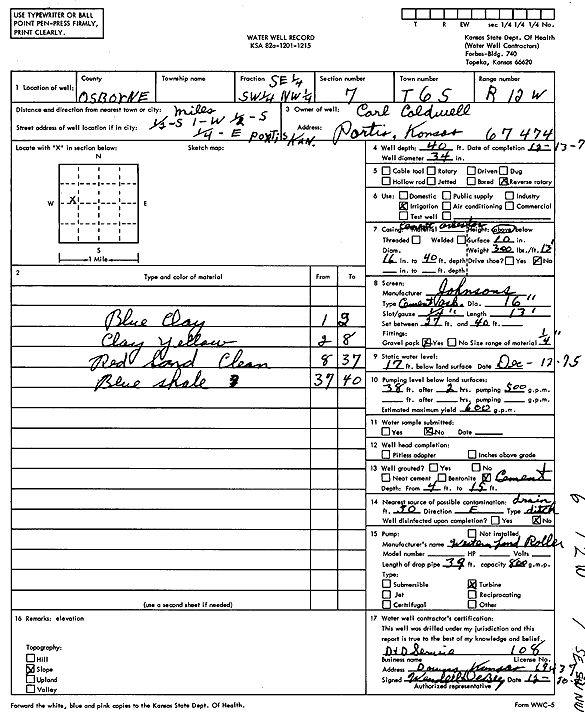 USE TYPEWRITER OR BALL
POINT PEN-PRESS FIRMLY,
PRINT CLEARLY.
WATER WELL RECORD
KSA 82a-1201-1215
T R EW sec 1/4 1/4 1/4 No.
Kansas State Dept. Of Health
(Water Well Contractors)
Forbes-Bldg. 740
Topeka, Kansas 66620
1 Location of well:
County
OSBORNE
Township name
Fraction SE 1/4
SW 1/4 NW 1/4
Section number
7
Town number
T 6 S
Range number
R 12 W
Distance and direction from nearest town or city: miles
1/2-S 1-W 1/2-S
Street address of well location if in city: 1/4-E PORTIS KAN.
3 Owner of well: Carl Caldwell
Address: Portis, Kansas 67474
Locate with "X" in section below:
Sketch map:
N
W X E
S
1 Mile
4 Well depth: 40 ft. Date of completion 12-13-7
Well diameter 34 in.
5 Cable tool Rotary Driven Dug
Hollow rod Jetted Bored X Reverse rotary
6 Use: Domestic Public supply Industry
X Irrigation Air conditioning Commercial
Test well
7 Casing: Material Height: above/below
Threaded Welded Surface 10 in.
Diam. Weight 300 lbs./ft. 13'
16 in. to 40 ft. depth Drive shoe? Yes X No
in. to ft. depth
2 Type and color of material From To
Blue Clay 1 2
Clay yellow 2 8
Red Sand Clean 8 37
Blue shale 37 40
(use a second sheet if needed)
8 Screen:
Manufacturer Johnsons
Type Dia. 16"
Slot/gauze 1/4" Length 13'
Set between 27 ft. and 40 ft.
Fittings:
Gravel pack X Yes No Size range of material 1/4"
9 Static water level:
17 ft. below land surface Date Dec-13-75
10 Pumping level below land surfaces:
38 ft. after 2 hrs. pumping 500 g.p.m.
ft. after hrs. pumping g.p.m.
Estimated maximum yield 600 g.p.m.
11 Water sample submitted:
Yes X No Date
12 Well head completion:
Pitless adapter Inches above grade
13 Well grouted? Yes No
Neat cement Bentonite X Cement
Depth: From 4 ft. to 15 ft.
14 Nearest source of possible contamination: drain
ft. 70 Direction E Type ditch
Well disinfected upon completion? Yes X No
15 Pump: Not installed
Manufacturer's name Western Land Roller
Model number HP Volts
Length of drop pipe 39 ft. capacity 800 g.m.p.
Type:
Submersible X Turbine
Jet Reciprocating
Certifugal Other
16 Remarks: elevation
Topography:
Hill
X Slope
Upland
Valley
17 Water well contractor's certification:
This well was drilled under my jurisdiction and this
report is true to the best of my knowledge and belief.
D+D Service 108
Business name License No.
Address Downs Kansas
Signed Date 12-
Authorized representative
Forward the white, blue and pink copies to the Kansas State Dept. Of Health.
Form WWC-5